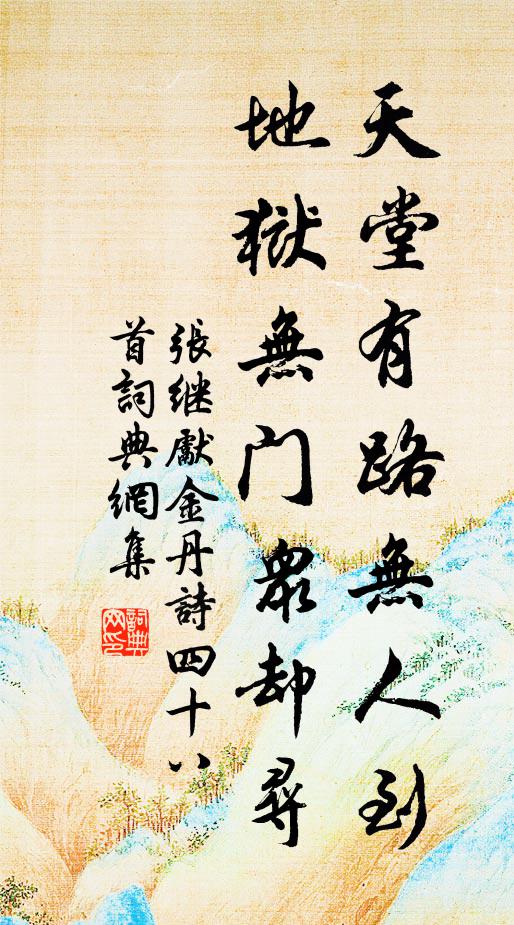 天堂有路無人到
地獄無门眾却尋
張继獻金丹詩四十八
首詞典網集
詞典
网印